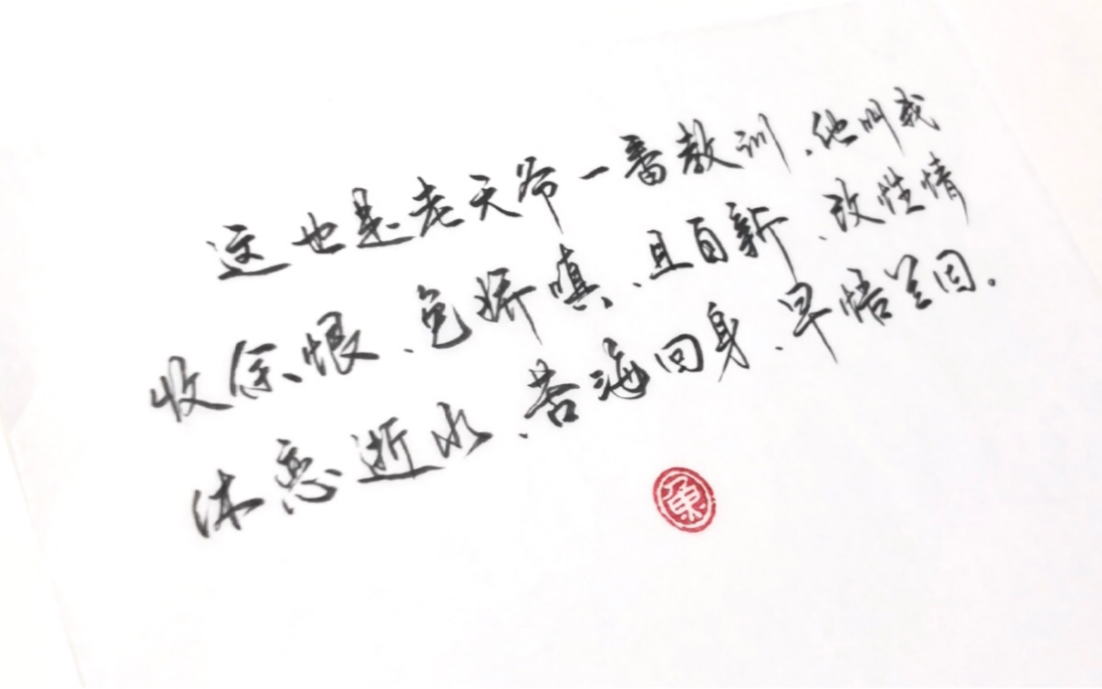 这也是老天爷一番教训、他叫我
收余恨、免娇嗔、且自新、改性情
休恋逝水、苦海回身、早悟兰因。